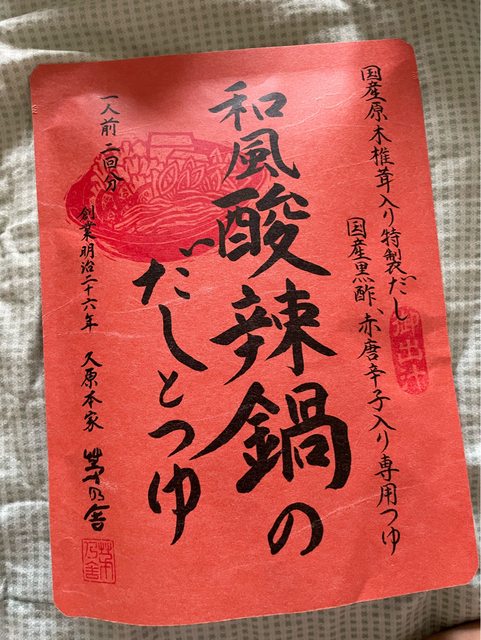 国産原木椎茸入り特製だし
国産黒酢、赤唐辛子入り専用つゆ
御出汁
和風酸辣鍋の
だしとつゆ
一人前二回分
創業明治二十六年 久原本家 茅乃舎
茅乃舎